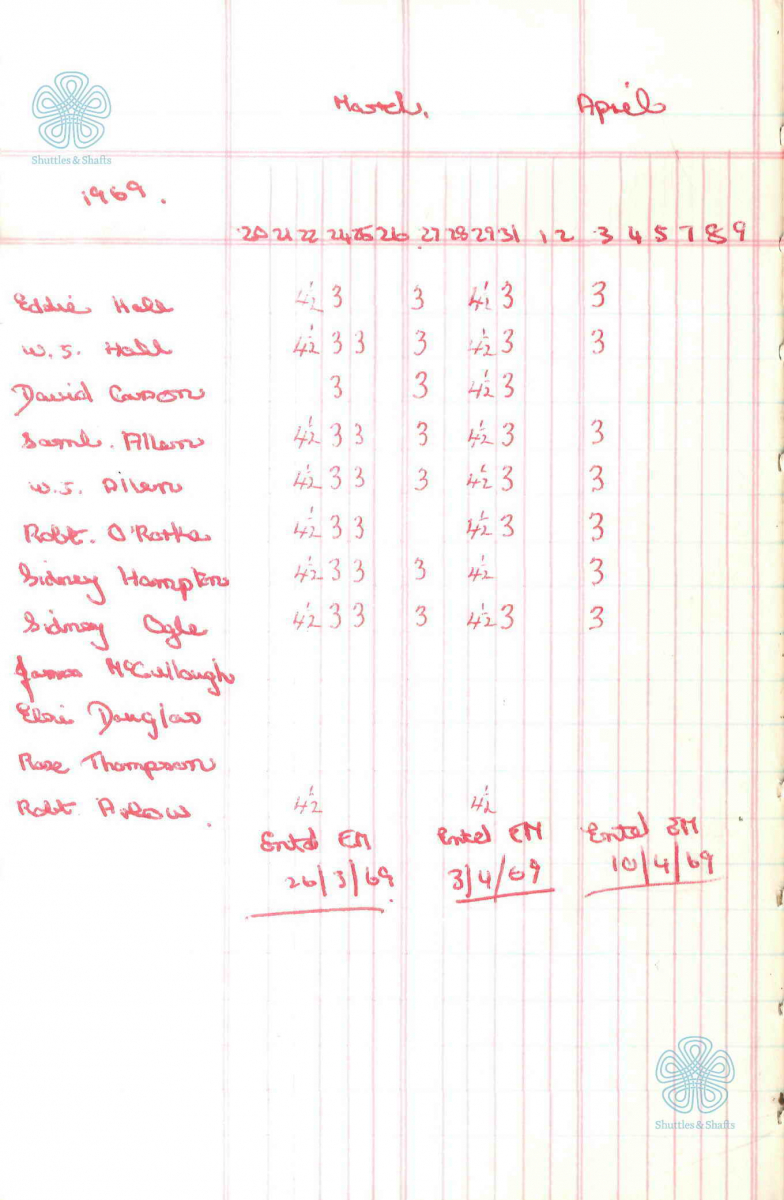 March. April
Shuttles & Shafts
1969.
20 21 22 24 25 26 27 28 29 31 1 2 3 4 5 7 8 9
Eddie Hall 4½ 3 3 4½ 3 3
W. S. Hall 4½ 3 3 3 4½ 3 3
David Carson 3 3 4½ 3
Saml. Allen 4½ 3 3 3 4½ 3 3
W. J. Allen 4½ 3 3 3 4½ 3 3
Robt. O'Rorke 4½ 3 3 4½ 3 3
Sidney Hampton 4½ 3 3 3 4½ 3
Sidney Ogle 4½ 3 3 3 4½ 3 3
James McCullough
Douglas
Rose Thompson
Robt Arlow. 4½ 4½
Entd EM Entd EM Entd EM
26/3/69 3/4/69 10/4/69
Shuttles & Shafts